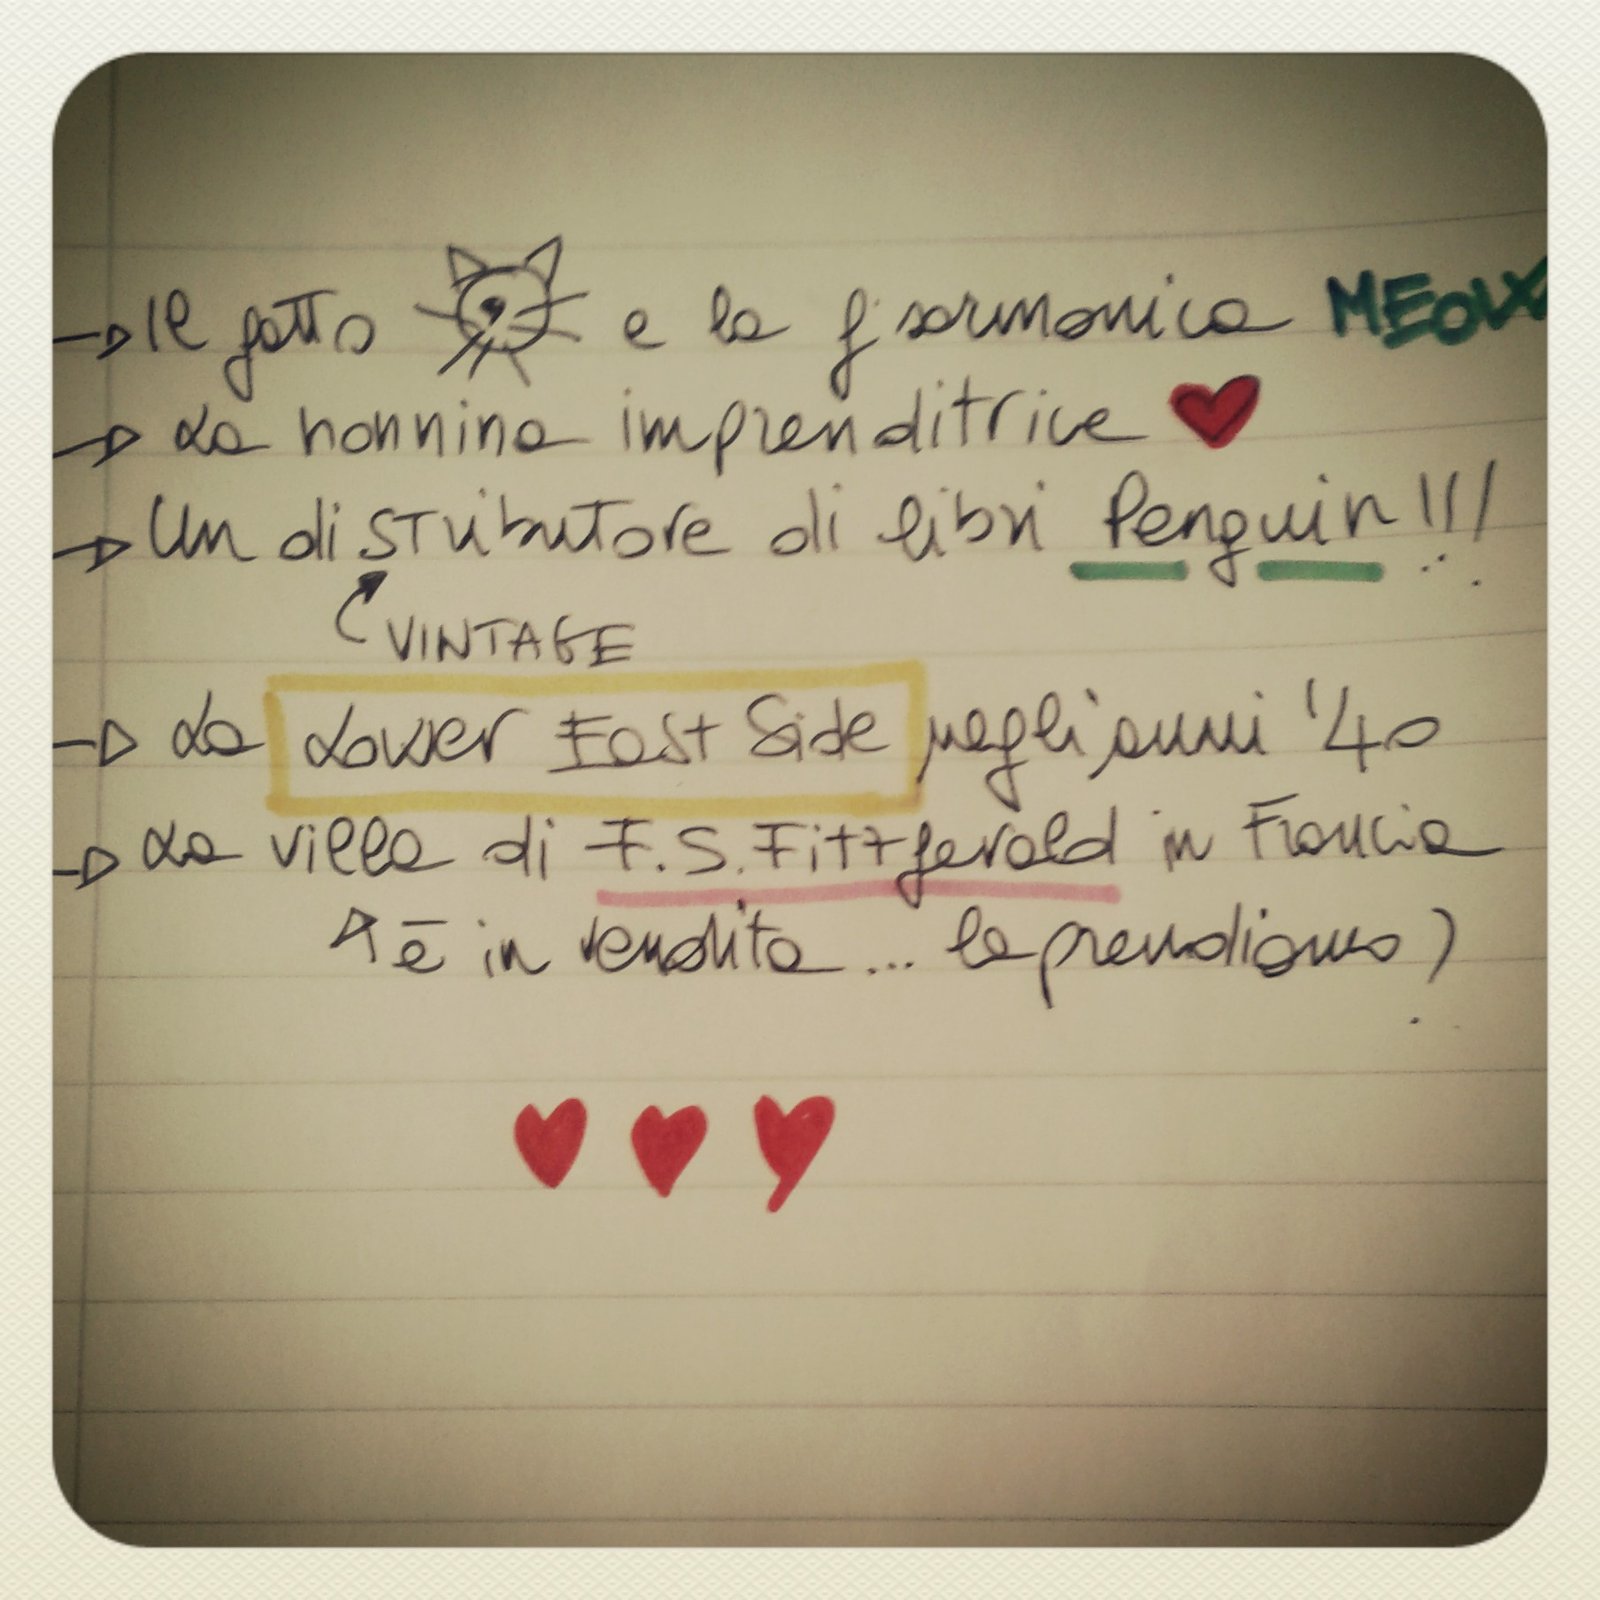 → Il gatto e la fisarmonica MEOW
→ La nonnina imprenditrice
→ Un distributore di libri Penguin!!!
VINTAGE
→ La Lower East Side negli anni '40
→ La villa di F.S. Fitzgerald in Francia
è in vendita... la prendiamo?